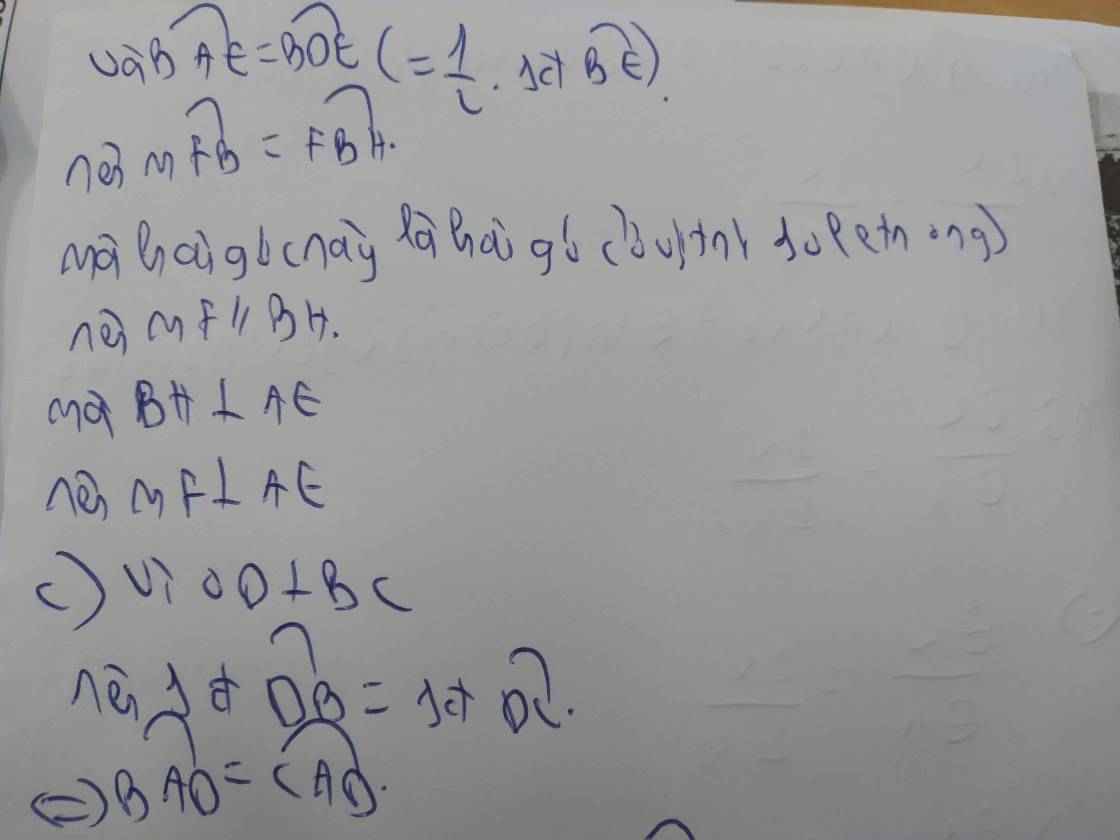 và BAE = BDE (= 1/2 . sđ BE).
nên MFB = FBH.
mà hai góc này là hai góc ở vị trí so le trong)
nên MF // BH.
mà BH ⊥ AE
nên MF ⊥ AE
c) Vì OD ⊥ BC
nên sđ DB = sđ DC.
⇔ BAD = CAD.